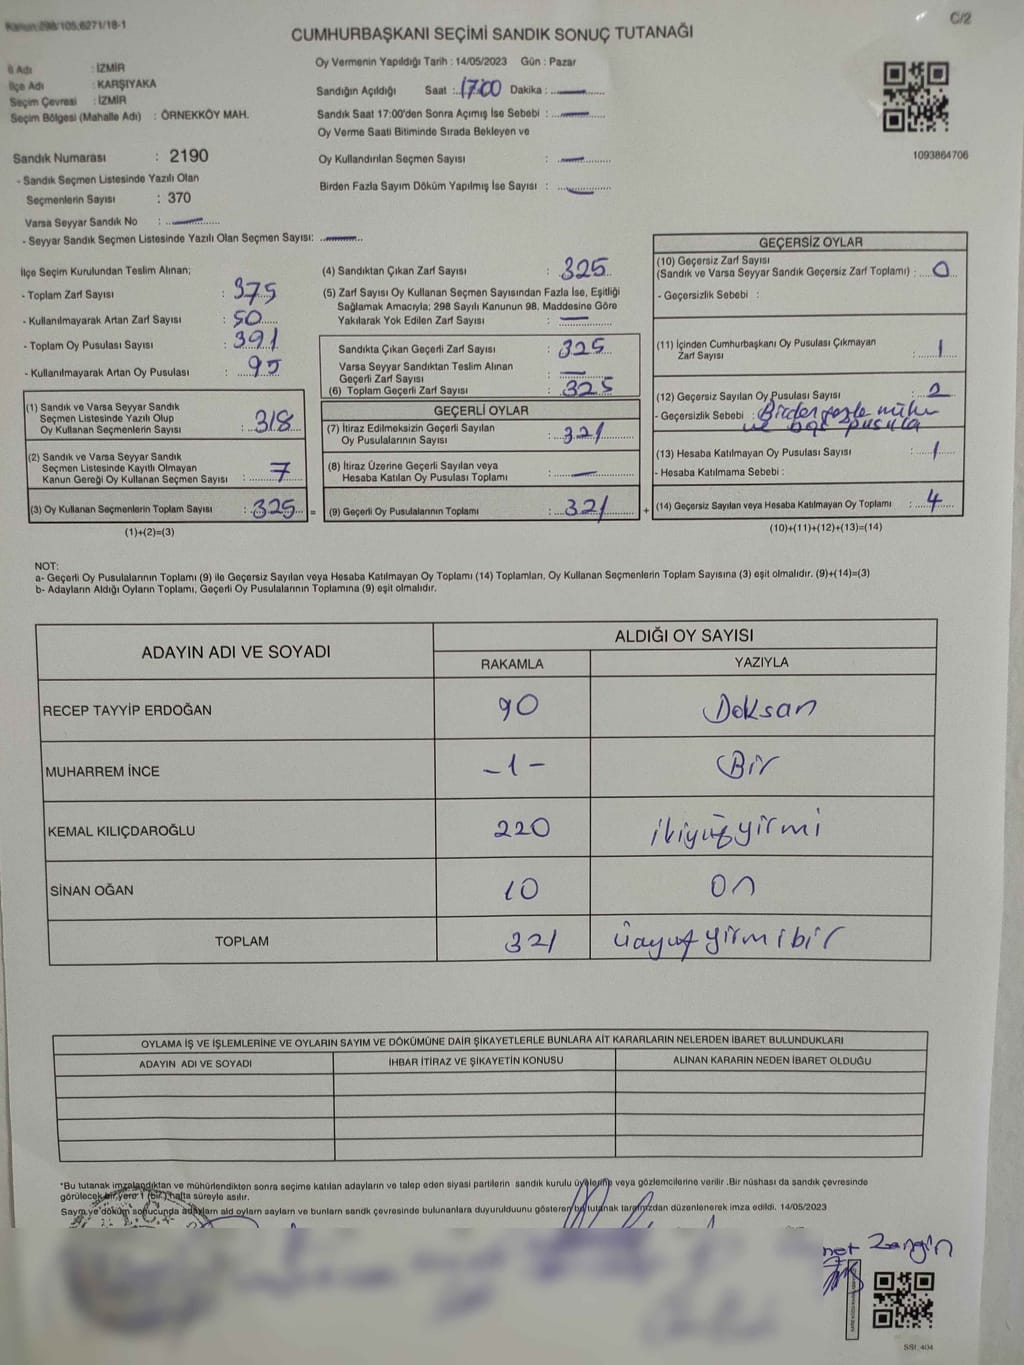 Kanun:298/105,6271/18-1
C/2
CUMHURBAŞKANI SEÇİMİ SANDIK SONUÇ TUTANAĞI
İl Adı : İZMİR
İlçe Adı : KARŞIYAKA
Seçim Çevresi : İZMİR
Seçim Bölgesi (Mahalle Adı) : ÖRNEKKÖY MAH.
Sandık Numarası : 2190
- Sandık Seçmen Listesinde Yazılı Olan
Seçmenlerin Sayısı : 370
Varsa Seyyar Sandık No : —
- Seyyar Sandık Seçmen Listesinde Yazılı Olan Seçmen Sayısı: —
Oy Vermenin Yapıldığı Tarih : 14/05/2023 Gün : Pazar
Sandığın Açıldığı Saat : 17:00 Dakika : —
Sandık Saat 17:00'den Sonra Açımış İse Sebebi : —
Oy Verme Saati Bitiminde Sırada Bekleyen ve
Oy Kullandırılan Seçmen Sayısı : —
Birden Fazla Sayım Döküm Yapılmış İse Sayısı : —
1093864706
İlçe Seçim Kurulundan Teslim Alınan;
- Toplam Zarf Sayısı : 375
- Kullanılmayarak Artan Zarf Sayısı : 50
- Toplam Oy Pusulası Sayısı : 391
- Kullanılmayarak Artan Oy Pusulası : 95
(1) Sandık ve Varsa Seyyar Sandık
Seçmen Listesinde Yazılı Olup
Oy Kullanan Seçmenlerin Sayısı : 318
(2) Sandık ve Varsa Seyyar Sandık
Seçmen Listesinde Kayıtlı Olmayan
Kanun Gereği Oy Kullanan Seçmen Sayısı : 7
(3) Oy Kullanan Seçmenlerin Toplam Sayısı : 325 =
(1)+(2)=(3)
(4) Sandıktan Çıkan Zarf Sayısı : 325
(5) Zarf Sayısı Oy Kullanan Seçmen Sayısından Fazla İse, Eşitliği
Sağlamak Amacıyla; 298 Sayılı Kanunun 98. Maddesine Göre
Yakılarak Yok Edilen Zarf Sayısı : —
Sandıkta Çıkan Geçerli Zarf Sayısı : 325
Varsa Seyyar Sandıktan Teslim Alınan
Geçerli Zarf Sayısı : —
(6) Toplam Geçerli Zarf Sayısı : 325
GEÇERLİ OYLAR
(7) İtiraz Edilmeksizin Geçerli Sayılan
Oy Pusulalarının Sayısı : 321
(8) İtiraz Üzerine Geçerli Sayılan veya
Hesaba Katılan Oy Pusulası Toplamı : —
(9) Geçerli Oy Pusulalarının Toplamı : 321 +
GEÇERSİZ OYLAR
(10) Geçersiz Zarf Sayısı
(Sandık ve Varsa Seyyar Sandık Geçersiz Zarf Toplamı) : 0
- Geçersizlik Sebebi :
(11) İçinden Cumhurbaşkanı Oy Pusulası Çıkmayan
Zarf Sayısı : 1
(12) Geçersiz Sayılan Oy Pusulası Sayısı : 2
- Geçersizlik Sebebi : Birden fazla mühür
ve boş pusula
(13) Hesaba Katılmayan Oy Pusulası Sayısı : 1
- Hesaba Katılmama Sebebi :
(14) Geçersiz Sayılan veya Hesaba Katılmayan Oy Toplamı : 4
(10)+(11)+(12)+(13)=(14)
NOT:
a- Geçerli Oy Pusulalarının Toplamı (9) ile Geçersiz Sayılan veya Hesaba Katılmayan Oy Toplamı (14) Toplamları, Oy Kullanan Seçmenlerin Toplam Sayısına (3) eşit olmalıdır. (9)+(14)=(3)
b- Adayların Aldığı Oyların Toplamı, Geçerli Oy Pusulalarının Toplamına (9) eşit olmalıdır.
ADAYIN ADI VE SOYADI
ALDIĞI OY SAYISI
RAKAMLA YAZIYLA
RECEP TAYYİP ERDOĞAN 90 Doksan
MUHARREM İNCE -1- Bir
KEMAL KILIÇDAROĞLU 220 ikiyüzyirmi
SİNAN OĞAN 10 On
TOPLAM 321 üçyüzyirmibir
OYLAMA İŞ VE İŞLEMLERİNE VE OYLARIN SAYIM VE DÖKÜMÜNE DAİR ŞİKAYETLERLE BUNLARA AİT KARARLARIN NELERDEN İBARET BULUNDUKLARI
ADAYIN ADI VE SOYADI İHBAR İTİRAZ VE ŞİKAYETİN KONUSU ALINAN KARARIN NEDEN İBARET OLDUĞU
*Bu tutanak imzalandıktan ve mühürlendikten sonra seçime katılan adayların ve talep eden siyasi partilerin sandık kurulu üyelerine veya gözlemcilerine verilir .Bir nüshası da sandık çevresinde
görülecek bir yere 1 (bir) hafta süreyle asılır.
Sayım ve döküm sonucunda adayların ald oyların sayların ve bunların sandk çevresinde bulunanlara duyurulduunu gösteren bu tutanak tarafımızdan düzenlenerek imza edildi. 14/05/2023
T.C.
Zengin
SSI: 404